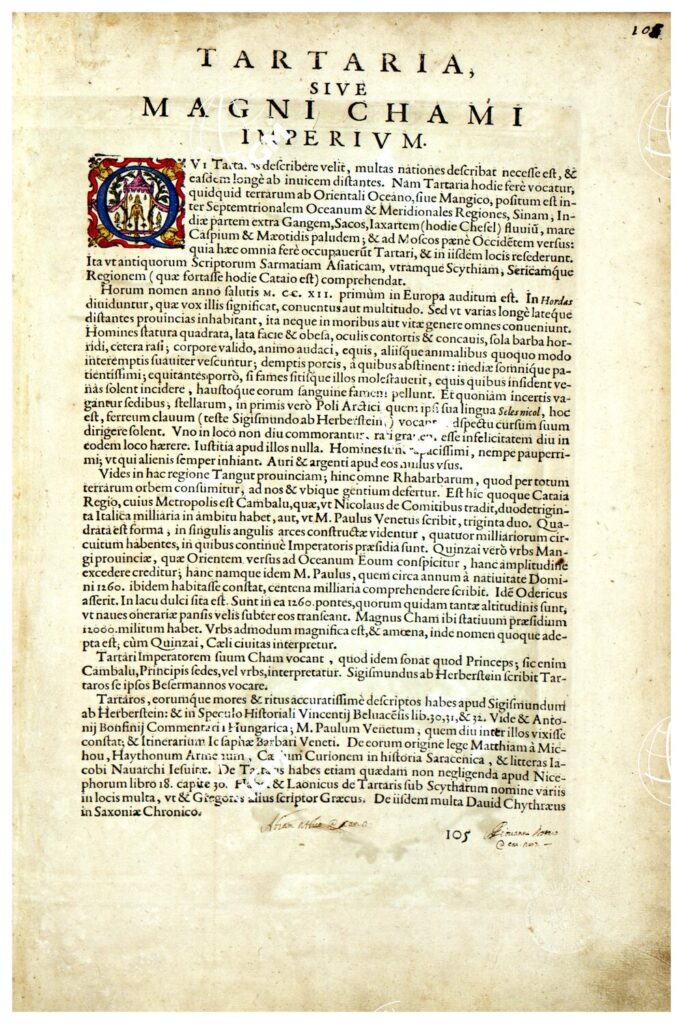 105
TARTARIA,
SIVE
MAGNI CHAMI
IMPERIVM.
QVI Tartaros describere velit, multas nationes describat necesse est, &
easdem longè ab inuicem distantes. Nam Tartaria hodie ferè vocatur,
quidquid terrarum ab Orientali Oceano, siue Mangico, positum est in-
ter Septemtrionalem Oceanum & Meridionales Regiones, Sinam, In-
diæ partem extra Gangem, Sacos, Iaxartem (hodie Chesel) fluuiũ, mare
Caspium & Mæotidis paludem; & ad Moscos pænè Occidẽtem versus:
quia hæc omnia ferè occupauerũt Tartari, & in iisdem locis resederunt.
Ita vt antiquorum Scriptorum Sarmatiam Asiaticam, vtramque Scythiam, Sericamque
Regionem (quæ fortasse hodie Cataio est) comprehendat.
Horum nomen anno salutis M. CC. XII. primùm in Europa auditum est. In Hordas
diuiduntur, quæ vox illis significat, conuentus aut multitudo. Sed vt varias longè lateque
distantes prouincias inhabitant, ita neque in moribus aut vitæ genere omnes conueniunt.
Homines statura quadrata, lata facie & obesa, oculis contortis & concauis, sola barba hor-
ridi, cetera rasi; corpore valido, animo audaci, equis, aliisque animalibus quoquo modo
interemptis suauiter vescuntur; demptis porcis, à quibus abstinent: inediæ somnique pa-
tientissimi; equitantes porrò, si fames sitisque illos molestauerit, equis quibus insident ve-
nas solent incidere, haustoque eorum sanguine famem pellunt. Et quoniam incertis va-
gantur sedibus, stellarum, in primis verò Poli Arctici quem ipsi sua lingua Selesnicol, hoc
est, ferreum clauum (teste Sigismundo ab Herberstein,) vocant dspectu cursum suum
dirigere solent. Vno in loco non diu commorantur, rati esse infelicitatem diu in
eodem loco hærere. Iustitia apud illos nulla. Homines sunt rapacissimi, nempe pauperri-
mi; vt qui alienis semper inhiant. Auri & argenti apud eos nullus vsus.
Vides in hac regione Tangut prouinciam; hinc omne Rhabarbarum, quod per totum
terrarum orbem consumitur, ad nos & vbique gentium defertur. Est hîc quoque Cataia
Regio, cuius Metropolis est Cambalu, quæ, vt Nicolaus de Comitibus tradit, duodetrigin-
ta Italica milliaria in ambitu habet, aut, vt M. Paulus Venetus scribit, triginta duo. Qua-
drata est forma, in singulis angulis arces constructæ videntur, quatuor milliariorum cir-
cuitum habentes, in quibus continuè Imperatoris præsidia sunt. Quinzai verò vrbs Man-
gi prouinciæ, quæ Orientem versus ad Oceanum Eoum conspicitur, hanc amplitudine
excedere creditur; hanc namque idem M. Paulus, quem circa annum à natiuitate Domi-
ni 1260. ibidem habitasse constat, centena milliaria comprehendere scribit. Idẽ Odericus
asserit. In lacu dulci sita est. Sunt in ea 1260. pontes, quorum quidam tantæ altitudinis sunt,
vt naues onerariæ pansis velis subter eos transeant. Magnus Cham ibi statiuum præsidium
12000. militum habet. Vrbs admodum magnifica est, & amœna, inde nomen quoque ade-
pta est; cùm Quinzai, Cæli ciuitas interpretur.
Tartari Imperatorem suum Cham vocant, quod idem sonat quod Princeps; sic enim
Cambalu, Principis sedes, vel vrbs, interpretatur. Sigismundus ab Herberstein scribit Tar-
taros se ipsos Besermannos vocare.
Tartaros, eorumque mores & ritus accuratissimè descriptos habes apud Sigismundum
ab Herberstein: & in Speculo Historiali Vincentij Beluacẽsis lib. 30, 31, & 32. Vide & Anto-
nij Bonfinij Commentari Hungarica; M. Paulum Venetum, quem diu inter illos vixisse
constat; & Itinerarium Iosaphæ Barbari Veneti. De eorum origine lege Matthiam à Mic-
hou, Haythonum Armenum, Cælium Curionem in historia Saracenica, & litteras Ia-
cobi Nauarchi Iesuitæ. De Tartaris habes etiam quædam non negligenda apud Nice-
phorum libro 18. capite 30. & Laonicus de Tartaris sub Scytharum nomine variis
in locis multa, vt & Gregoras alius scriptor Græcus. De iisdem multa Dauid Chythræus
in Saxoniæ Chronico.
105